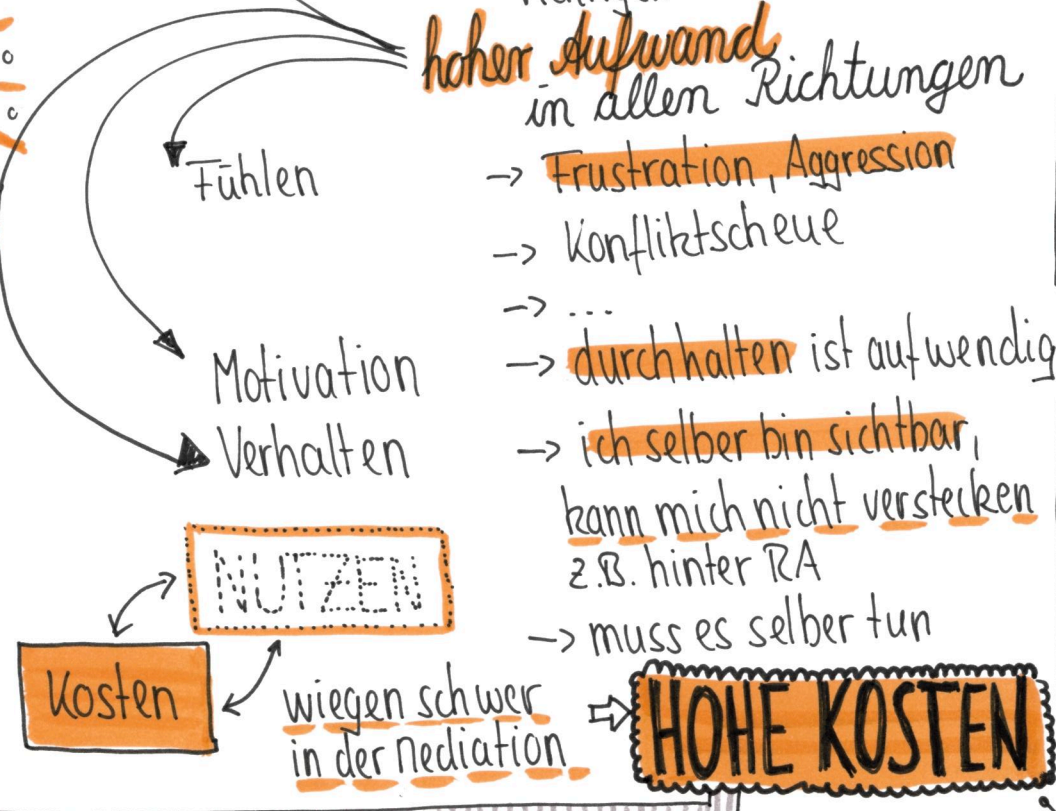 hoher Aufwand
in allen Richtungen
Fühlen
-> Frustration, Aggression
-> Konfliktscheue
-> ...
Motivation
-> durchhalten ist aufwendig
Verhalten
-> ich selber bin sichtbar,
kann mich nicht verstecken
z.B. hinter RA
-> muss es selber tun
NUTZEN
Kosten
wiegen schwer
in der Mediation
HOHE KOSTEN